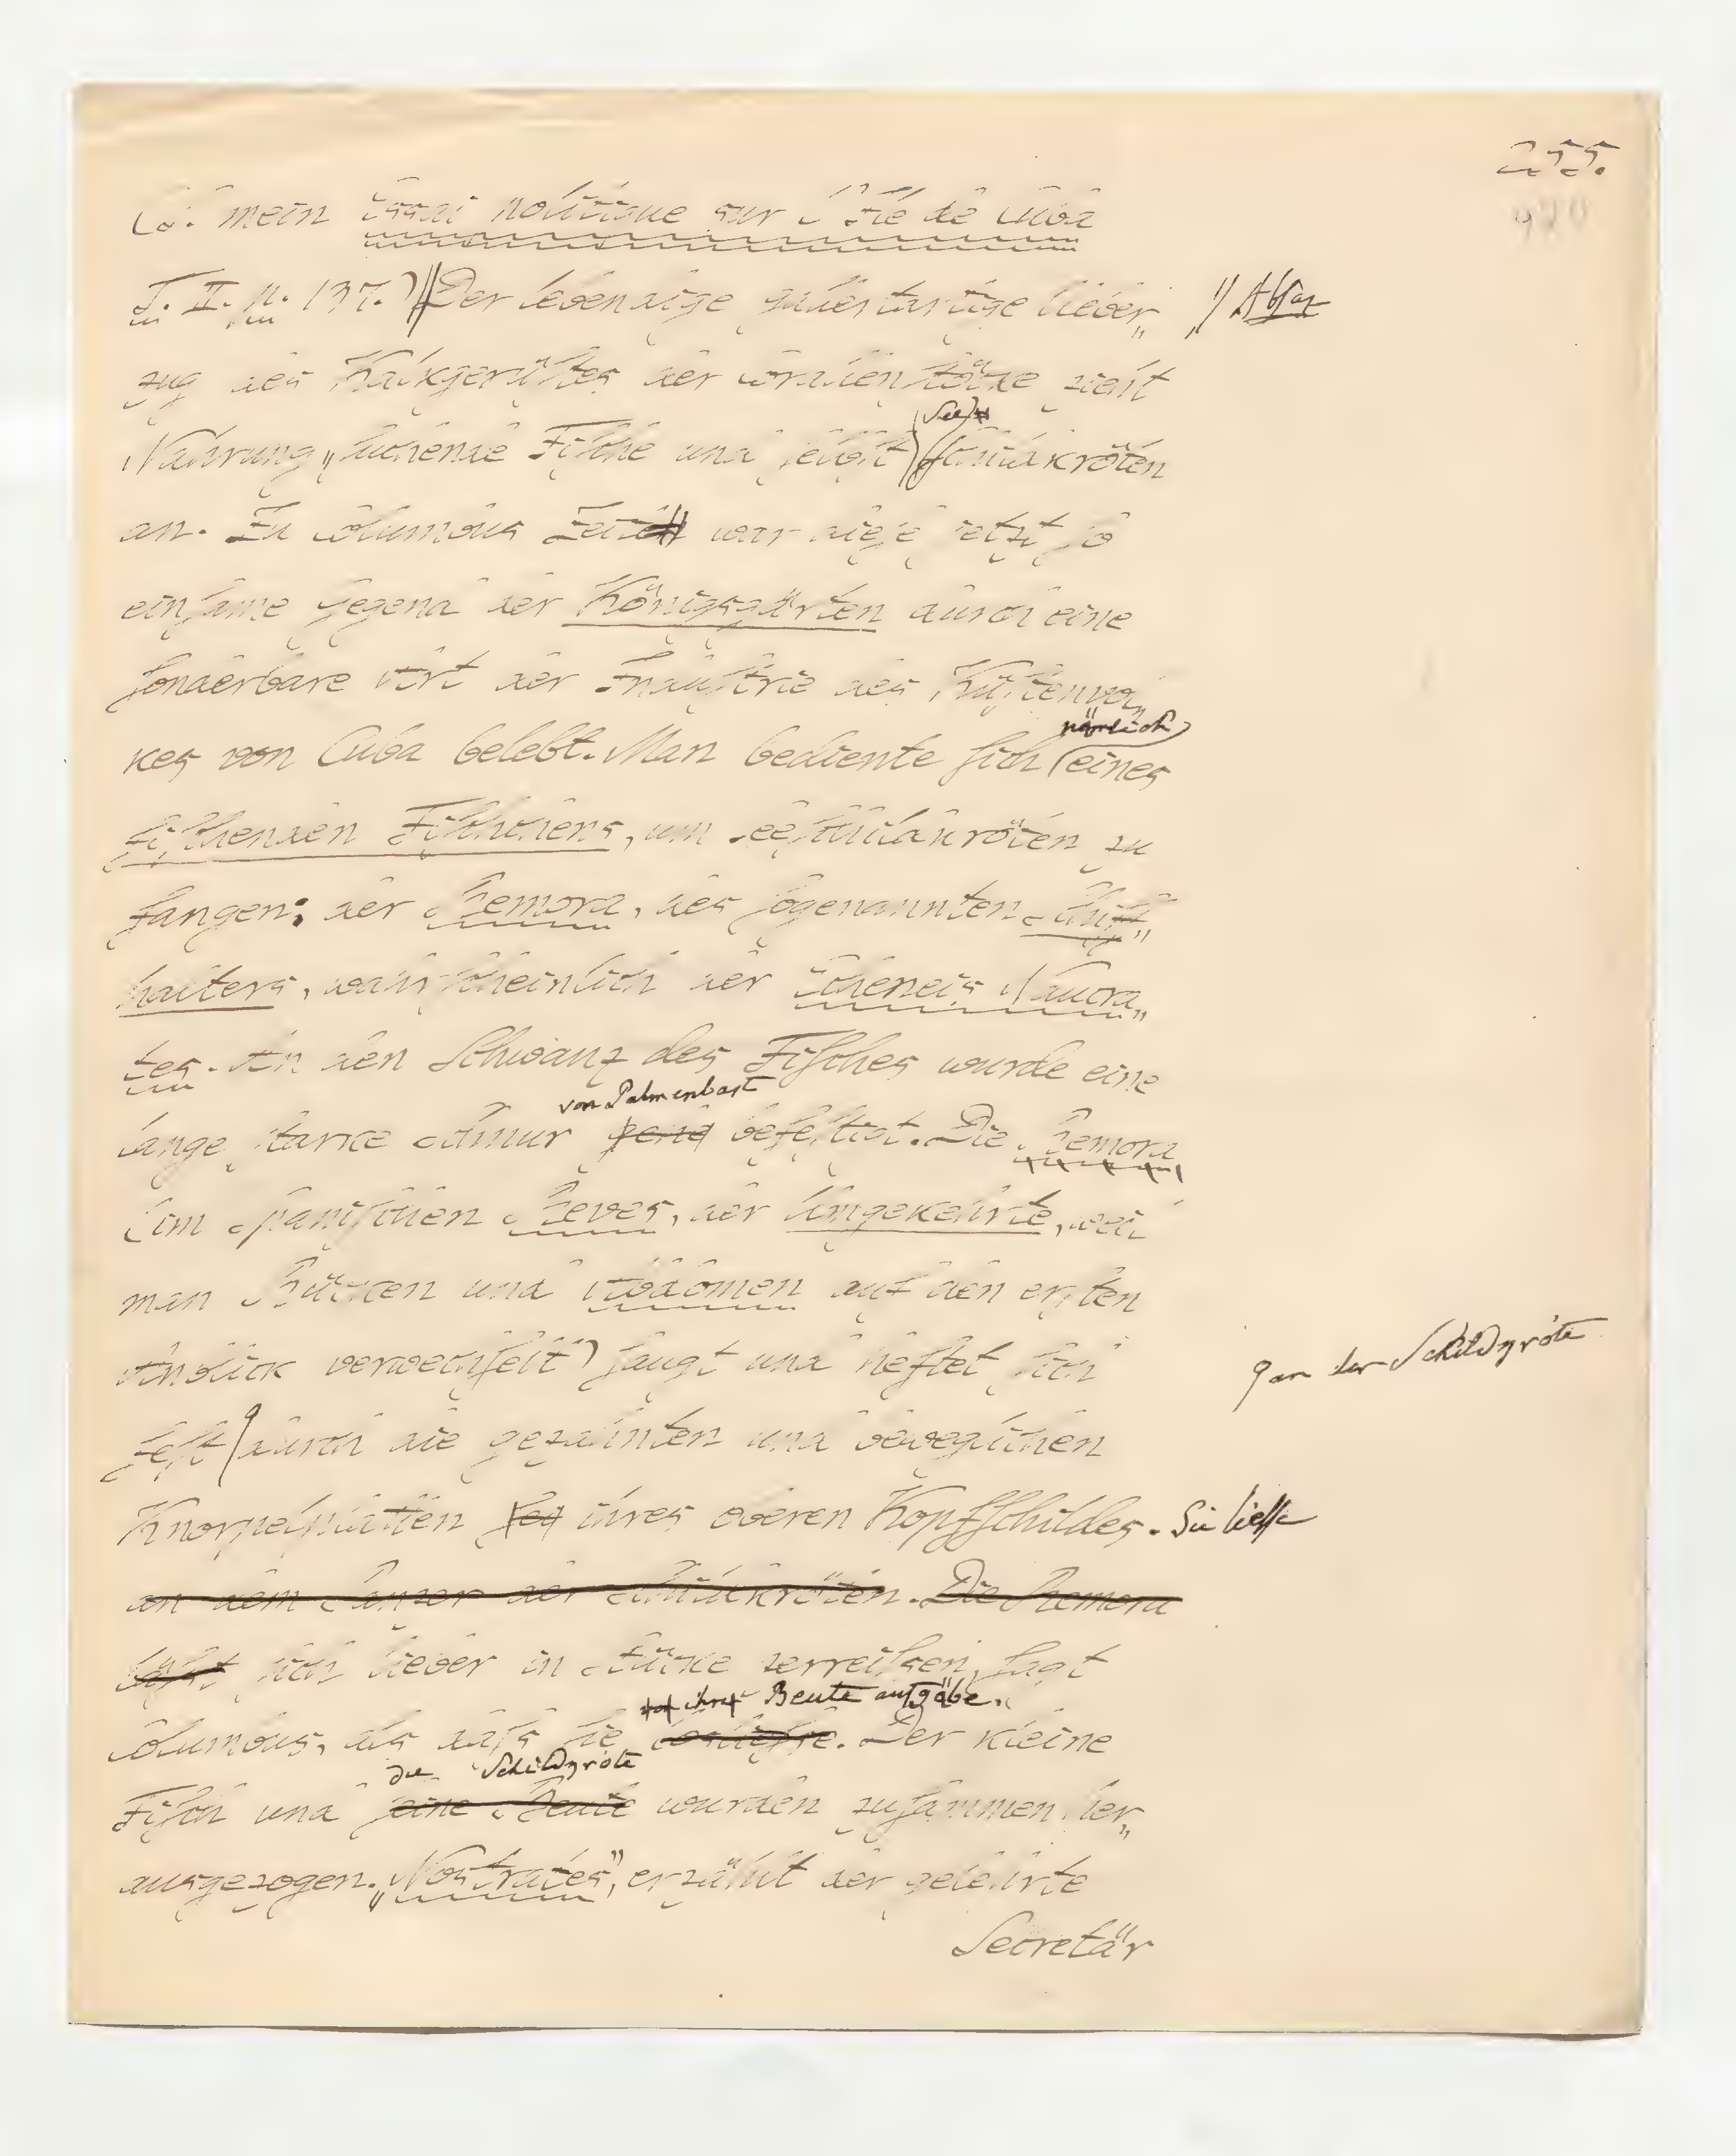 255.
420
(S. mein Essai politique sur l'Ile de Cuba
T. II. p. 137.) Der lebendige gallertartige Ueber„ // Absaz
zug des Kalkgerüstes der Corallenstöcke zieht
Nahrung„suchende Fische und selbst See
Schildkröten
an. Zu Columbus Zeit war diese jetzt so
einsame Gegend der Königsgärten durch eine
sonderbare Art der Industrie des Küstenvol„
nämlich
kes von Cuba belebt. Man bediente sich eines
fischenden Fischchens, um Seeschildkröten zu
fangen: der Remora, des sogenannten Schiff„
halters, wahrscheinlich der Echeneis Naucra„
tes. An den Schwanz des Fisches wurde eine
von Palmenbast
lange, starke Schnur befestigt. Die Remora
(im Spanischen Reves, der Umgekehrte, weil
man Rücken und Abdomen auf den ersten
Anblick verwechselt) saugt und heftet sich
an der Schildkröte
fest durch die gezähnten und beweglichen
Knorpelplatten ihres oberen Kopfschildes. Sie liesse
an dem Panzer der Schildkröten. Die Remora
läßt sich lieber in Stücke zerreißen, sagt
ihre Beute aufgäbe.
Columbus, als daß sie losließe. Der kleine
die Schildkröte
Fisch und seine Beute wurden zusammen her„
ausgezogen. „Nostrates", erzählt der gelehrte
Secretär